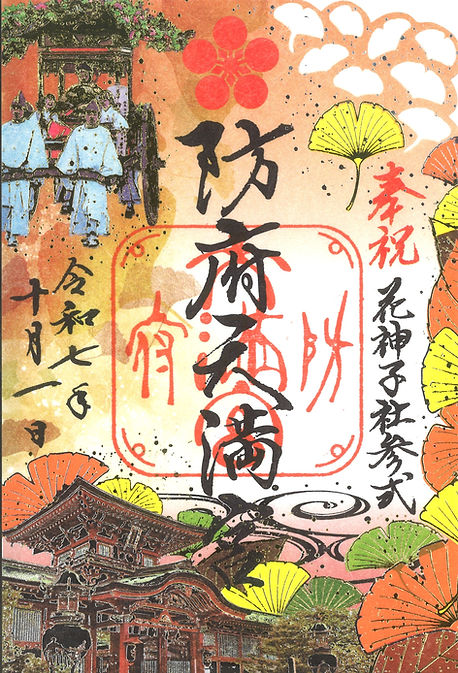 奉祝
花神子社参式
防府天満宮
令和七年
十月一日